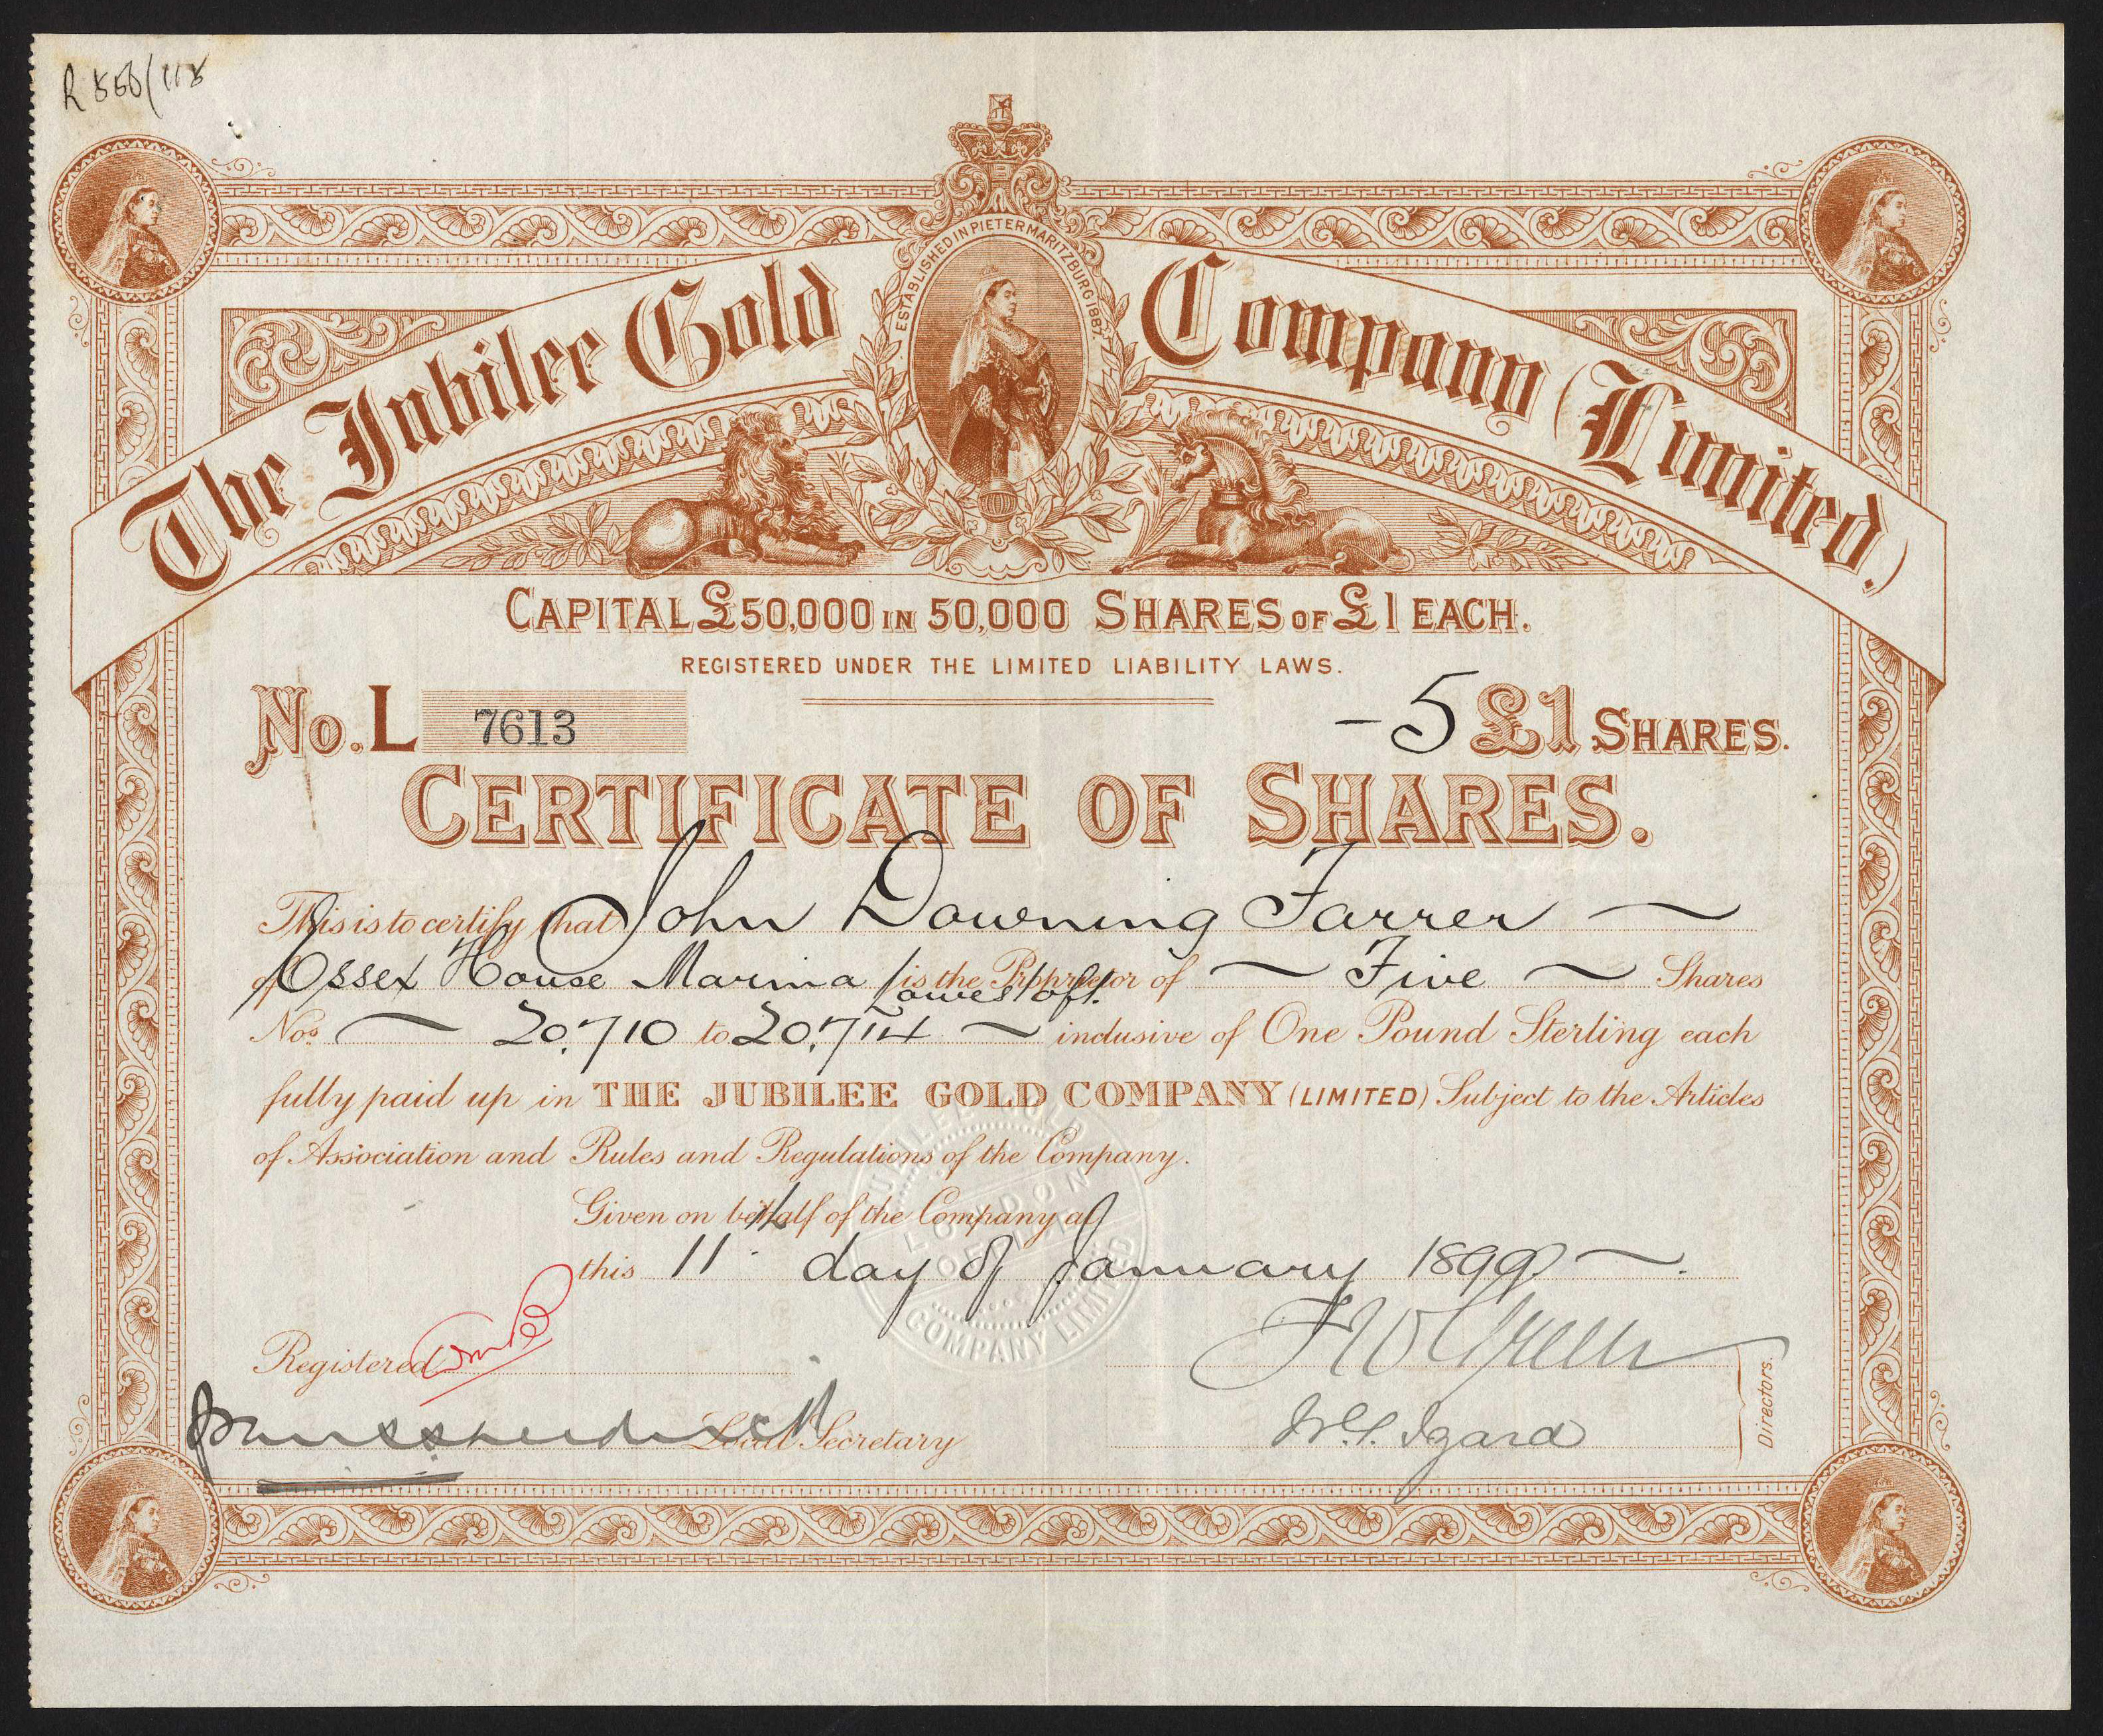 R 556/118
ESTABLISHED IN PIETERMARITZBURG 1887.
The Jubilee Gold Company (Limited.)
CAPITAL £50,000 IN 50,000 SHARES OF £1 EACH.
REGISTERED UNDER THE LIMITED LIABILITY LAWS.
No. L 7613
-5 £1 SHARES.
CERTIFICATE OF SHARES.
This is to certify that John Downing Farrer
of Essex House Marina Lowestoft. is the Proprietor of Five Shares
Nos 20,710 to 20,714 inclusive of One Pound Sterling each
fully paid up in THE JUBILEE GOLD COMPANY (LIMITED) Subject to the Articles
of Association and Rules and Regulations of the Company.
Given on behalf of the Company at
this 11th day of January 1899.
JUBILEE GOLD COMPANY LIMITED
LONDON OFFICE
Registered
Local Secretary
F W Green
W. S. Izard
Directors.